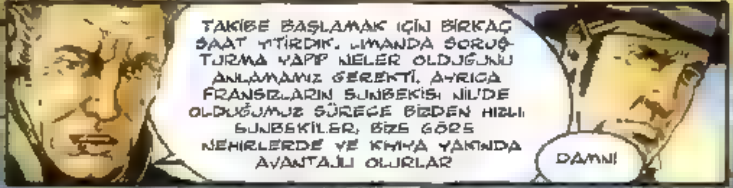 TAKİBE BAŞLAMAK İÇİN BİRKAÇ
SAAT YİTİRDİK. LİMANDA SORUŞ-
TURMA YAPIP NELER OLDUĞUNU
ANLAMAMIZ GEREKTİ, AYRICA
FRANSIZLARIN GUNBEKİSİ NİL'DE
OLDUĞUMUZ SÜRECE BİZDEN HIZLI.
GUNBEKİLER, BİZE GÖRE
NEHİRLERDE VE KIYIYA YAKINDA
AVANTAJLI OLURLAR
DAMN!